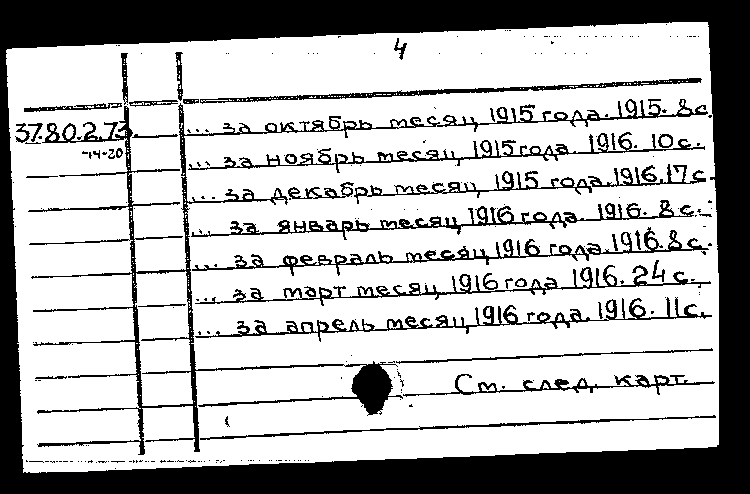 4
37.80.2.73. ... за октябрь месяц 1915 года. 1915. 8 с.
-14-20
... за ноябрь месяц 1915 года. 1916. 10 с.
... за декабрь месяц 1915 года. 1916. 17 с.
... за январь месяц 1916 года. 1916. 8 с.
... за февраль месяц 1916 года. 1916. 8 с.
... за март месяц 1916 года 1916. 24 с.
... за апрель месяц 1916 года. 1916. 11 с.
См. след. карт.